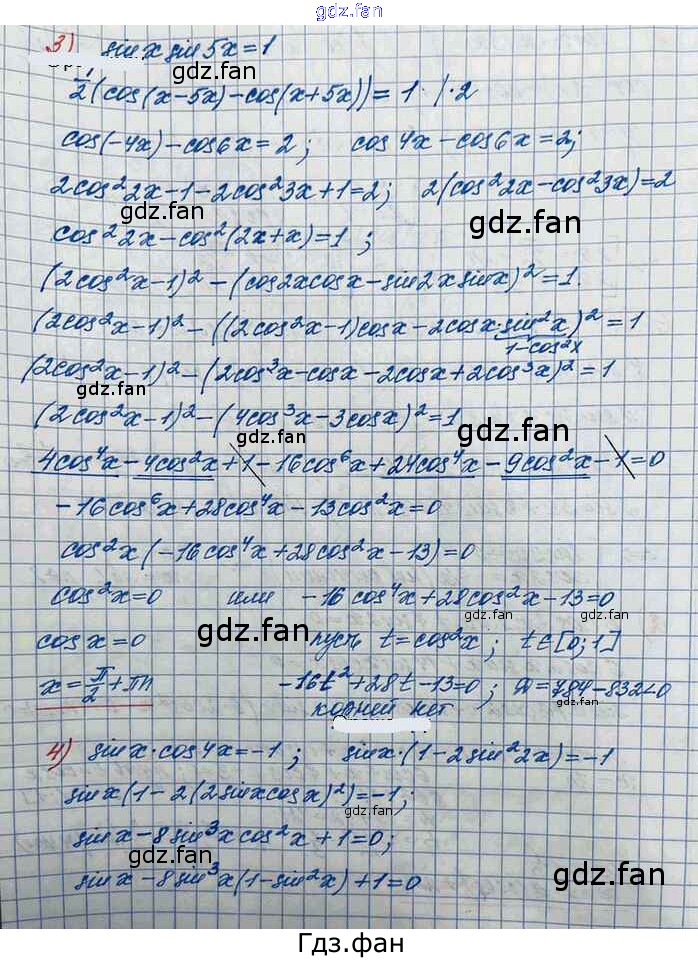 gdz.fan
3) sin x sin 5x = 1
gdz.fan
1/2 (cos(x-5x) - cos(x+5x)) = 1 · / · 2
cos(-4x) - cos6x = 2 ; cos 4x - cos 6x = 2;
2cos²2x - 1 - 2cos²3x + 1 = 2; 2(cos²2x - cos²3x) = 2
gdz.fan gdz.fan
cos²2x - cos²(2x+x) = 1 ;
(2cos²x - 1)² - (cos2x cosx - sin2x sinx)² = 1.
(2cos²x - 1)² - ((2cos²x - 1)cosx - 2cosx · sin²x)² = 1
1-cos²x
(2cos²x - 1)² - (2cos³x - cosx - 2cosx + 2cos³x)² = 1
gdz.fan
(2cos²x - 1)² - (4cos³x - 3cosx)² = 1
gdz.fan
4cos⁴x - 4cos²x + 1 - 16cos⁶x + 24cos⁴x - 9cos²x - 1 = 0
-16cos⁶x + 28cos⁴x - 13cos²x = 0
cos²x (-16cos⁴x + 28cos²x - 13) = 0
cos²x = 0 или -16cos⁴x + 28cos²x - 13 = 0
gdz.fan gdz.fan
cos x = 0 пусть t = cos²x ; t ∈ [0; 1]
x = π/2 + πn -16t² + 28t - 13 = 0 ; D = 784 - 832 < 0
gdz.fan
корней нет
4) sin x · cos4x = -1 ; sin x · (1 - 2sin²2x) = -1
sin x (1 - 2(2sinx cosx)²) = -1 ;
gdz.fan
sin x - 8sin³x cos²x + 1 = 0;
gdz.fan
sin x - 8sin³x (1 - sin²x) + 1 = 0
gdz.fan gdz.fan
Гдз.фан